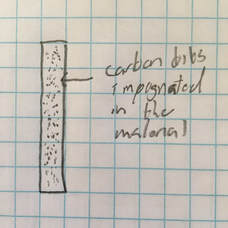 carbon bibs
impegnated
in the
material